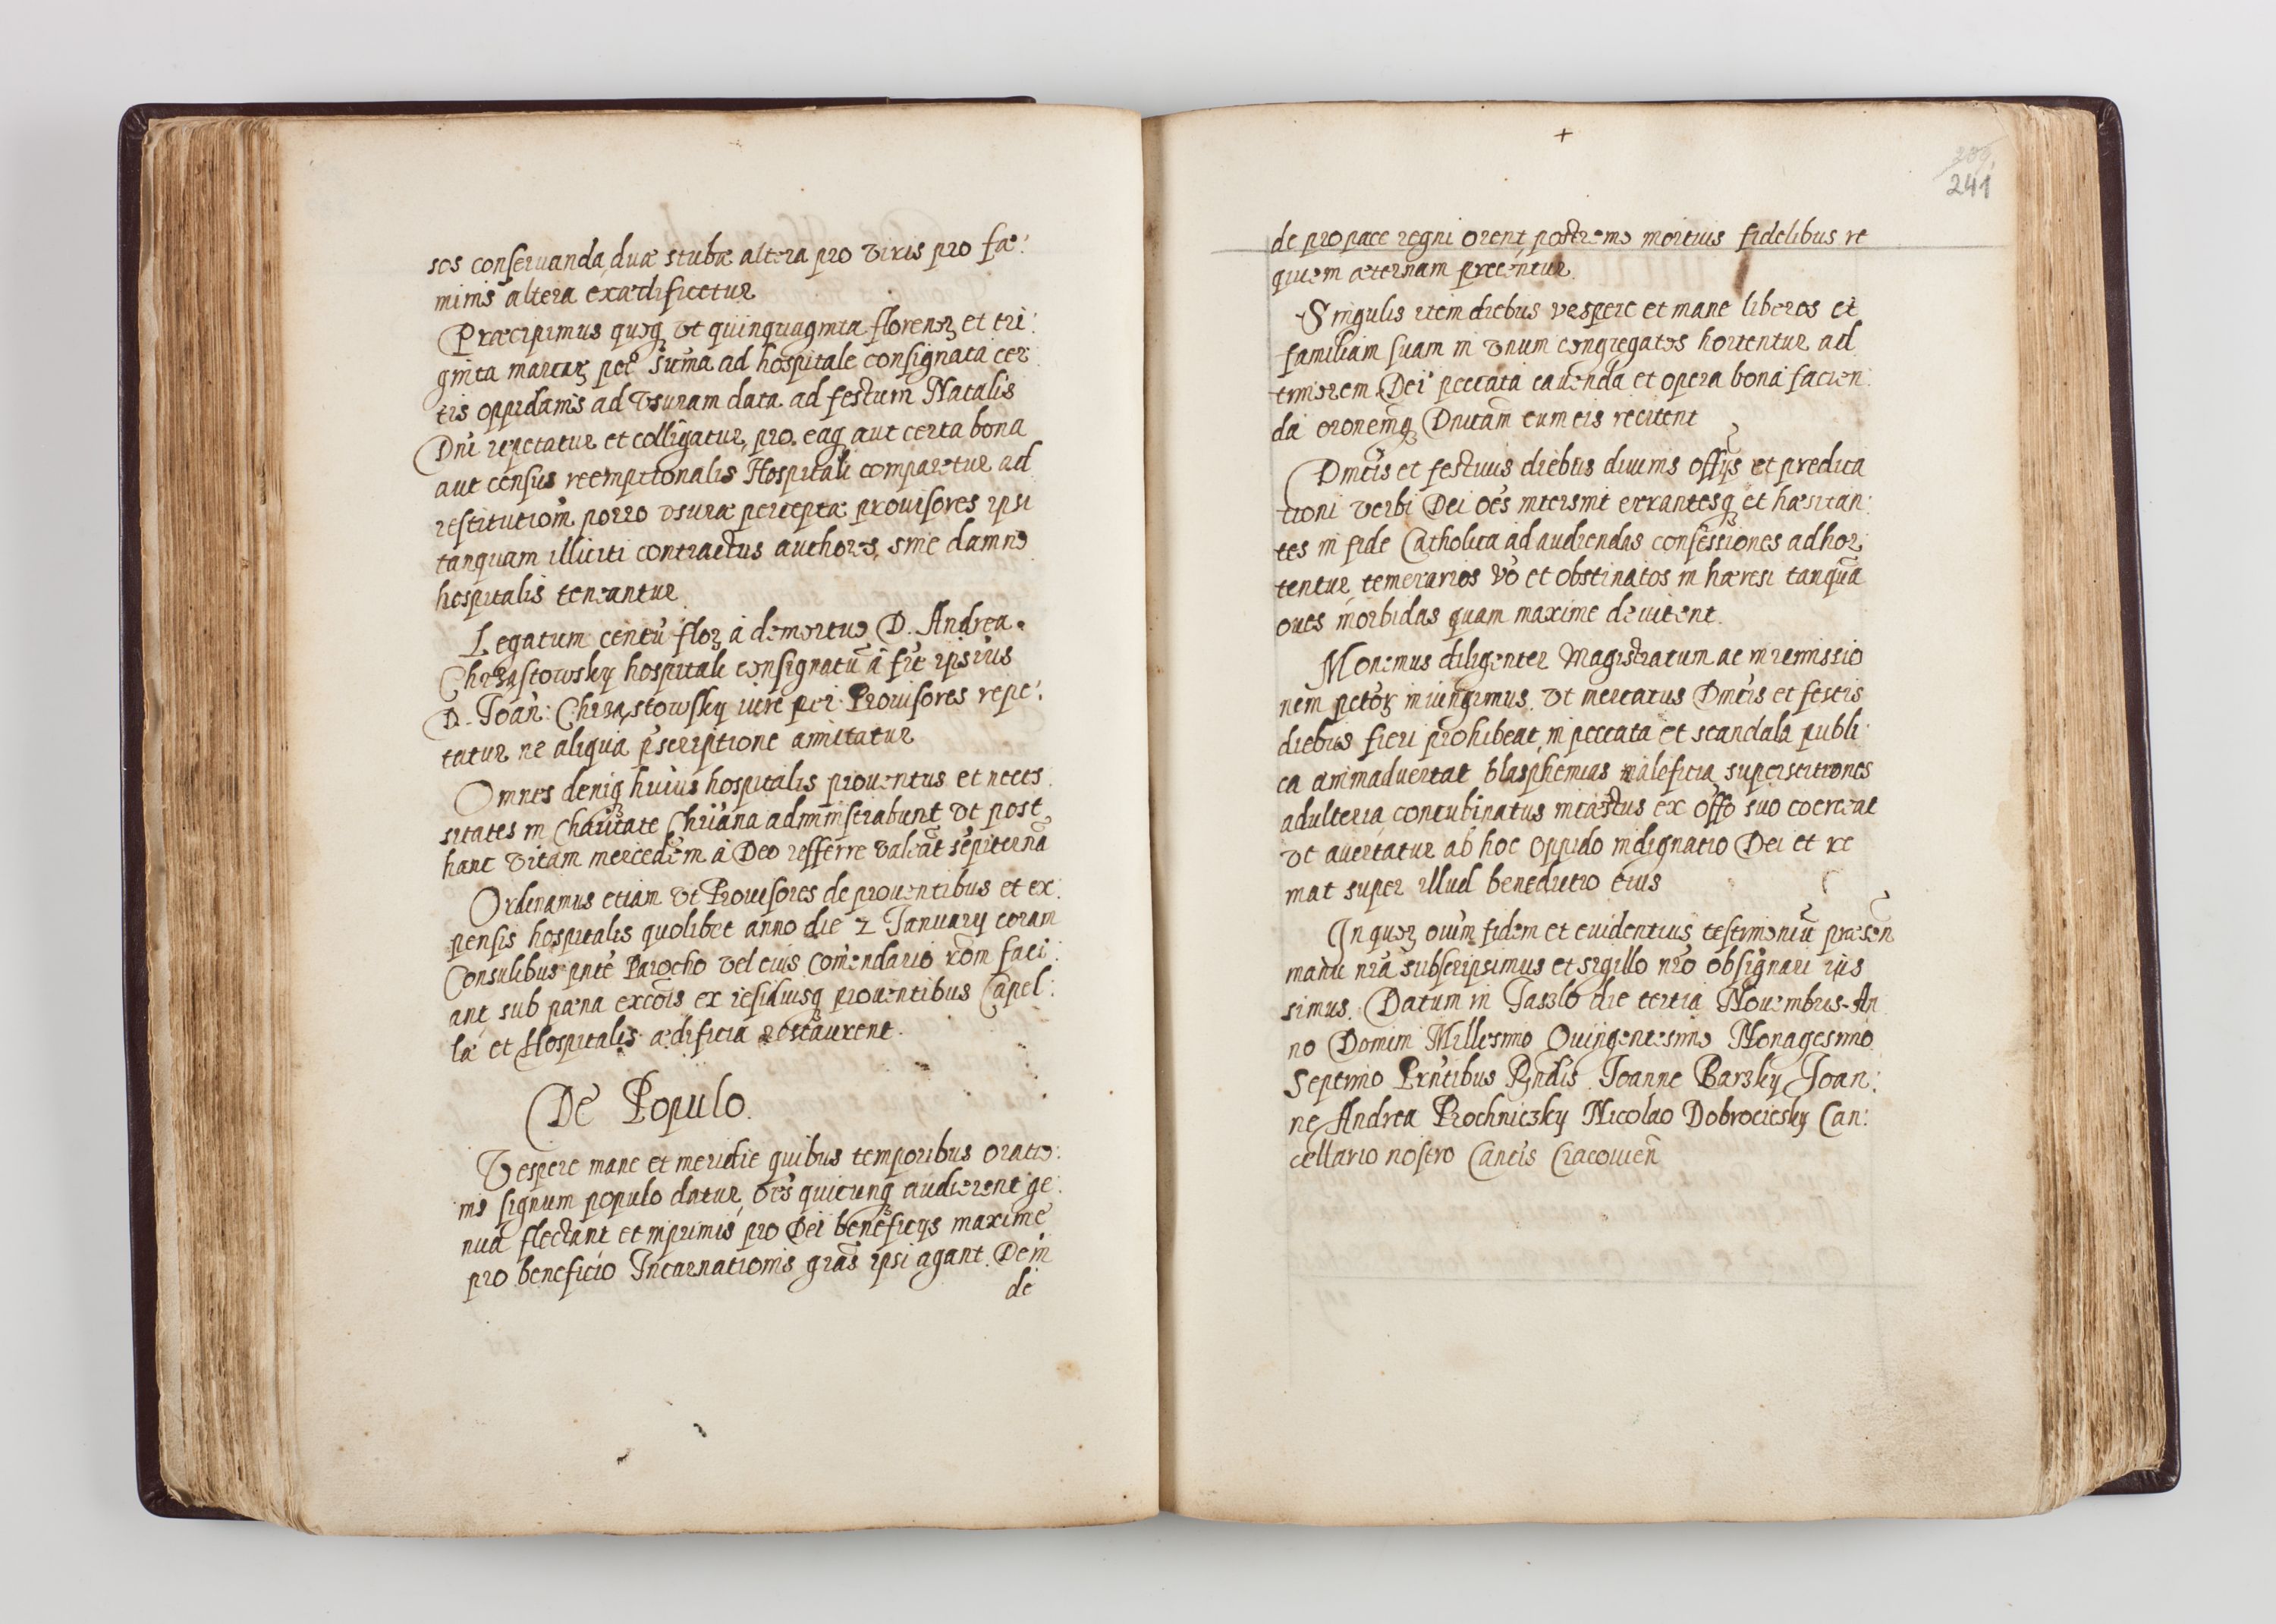 sos conseruanda, duæ stubæ altera pro viris pro fæ:
minis altera exædificetur
Præcipimus quoq; vt quinquaginta florenoꝝ et tri:
ginta marcaꝝ pec. sum̃a ad hospitale consignata cer
tis oppidanis ad vsuram data ad festum Natalis
Dnĩ repetatur et colligatur, pro eaq; aut certa bona
aut census reemptionalis Hospitali comparetur ad
restitutiom̃ porro vsuræ perceptæ prouisores ipsi
tanquam illiciti contractus authores, sine damno
hospitalis teneantur
Legatum centũ floꝝ à demortuo D. Andrea
Chrząstowsky hospitali consignatũ à frẽ ipsius
D. Joan: Chrząstowsky iure per Prouisores repe:
tatur ne aliqua p̃scriptione amittatur
Omnes deniq; huius hospitalis prouentus et neces
sitates in charitate Chriãna administrabunt vt post
hanc vitam mercedem à Deo refferre valeãt sẽpiternã
Ordinamus etiam vt Prouisores de prouentibus et ex:
pensis hospitalis quolibet anno die 2 Januarÿ coram
Consulibus pntẽ Parocho vel eius Com̃endario rõm faci:
ant, sub pæna excõis ex residuisq; prouentibus Capel:
læ et Hospitalis ædificia restaurent.
De Populo.
Vespere mane et meridie quibus temporibus oratio:
nis signum populo datur, oẽs quicunq; audierent ge:
nua flectant et inprimis pro Dei beneficÿs maxime
pro beneficio Incarnationis grãs ipsi agant. Dein
de
241
de pro pace regni orent, postremo mortuis fidelibus re
quiem æternam precentur.
Singulis item diebus vespere et mane liberos et
familiam suam in vnum congregatos hortentur ad
timorem Dei peccata cauenda et opera bona facien:
da oronemq; Dnicam̃ cum eis recitent
Dnicis et festiuis diebus diuinis offÿs et predica
tioni verbi Dei oẽs intersint errantesq; et hæsitan:
tes in fide Catholica ad audiendas confessiones adhor:
tentur, temerarios võ et obstinatos in hæresi tanquã
oues morbidas quam maxime deuitent.
Monemus diligenter Magistratum ac in remissio
nem pctõꝝ iniungimus. vt mercatus Dnicis et festis
diebus fieri prohibeat, in peccata et scandala publi:
ca animaduertat blasphemias maleficia superstitiones
adulteria concubinatus incæstus ex offõ suo coerceat
vt auertatur ab hoc oppido indignatio Dei et re
mat super illud benedictio eius
In quoꝝ oium̃ fidem et euidentius testimoniũ præsen̄
manu nrã subscripsimus et sigillo nrõ obsignari ius
simus. Datum in Jaszlo die tertia Nouembris. An
no Domini Millesimo Quingentesimo Nonagesimo
Septimo Pntibus Rndis Joanne Barzky Joan:
ne Andrea Prochniczky Nicolao Dobrociesky Can:
cellario nostro Cancis Cracouien̄